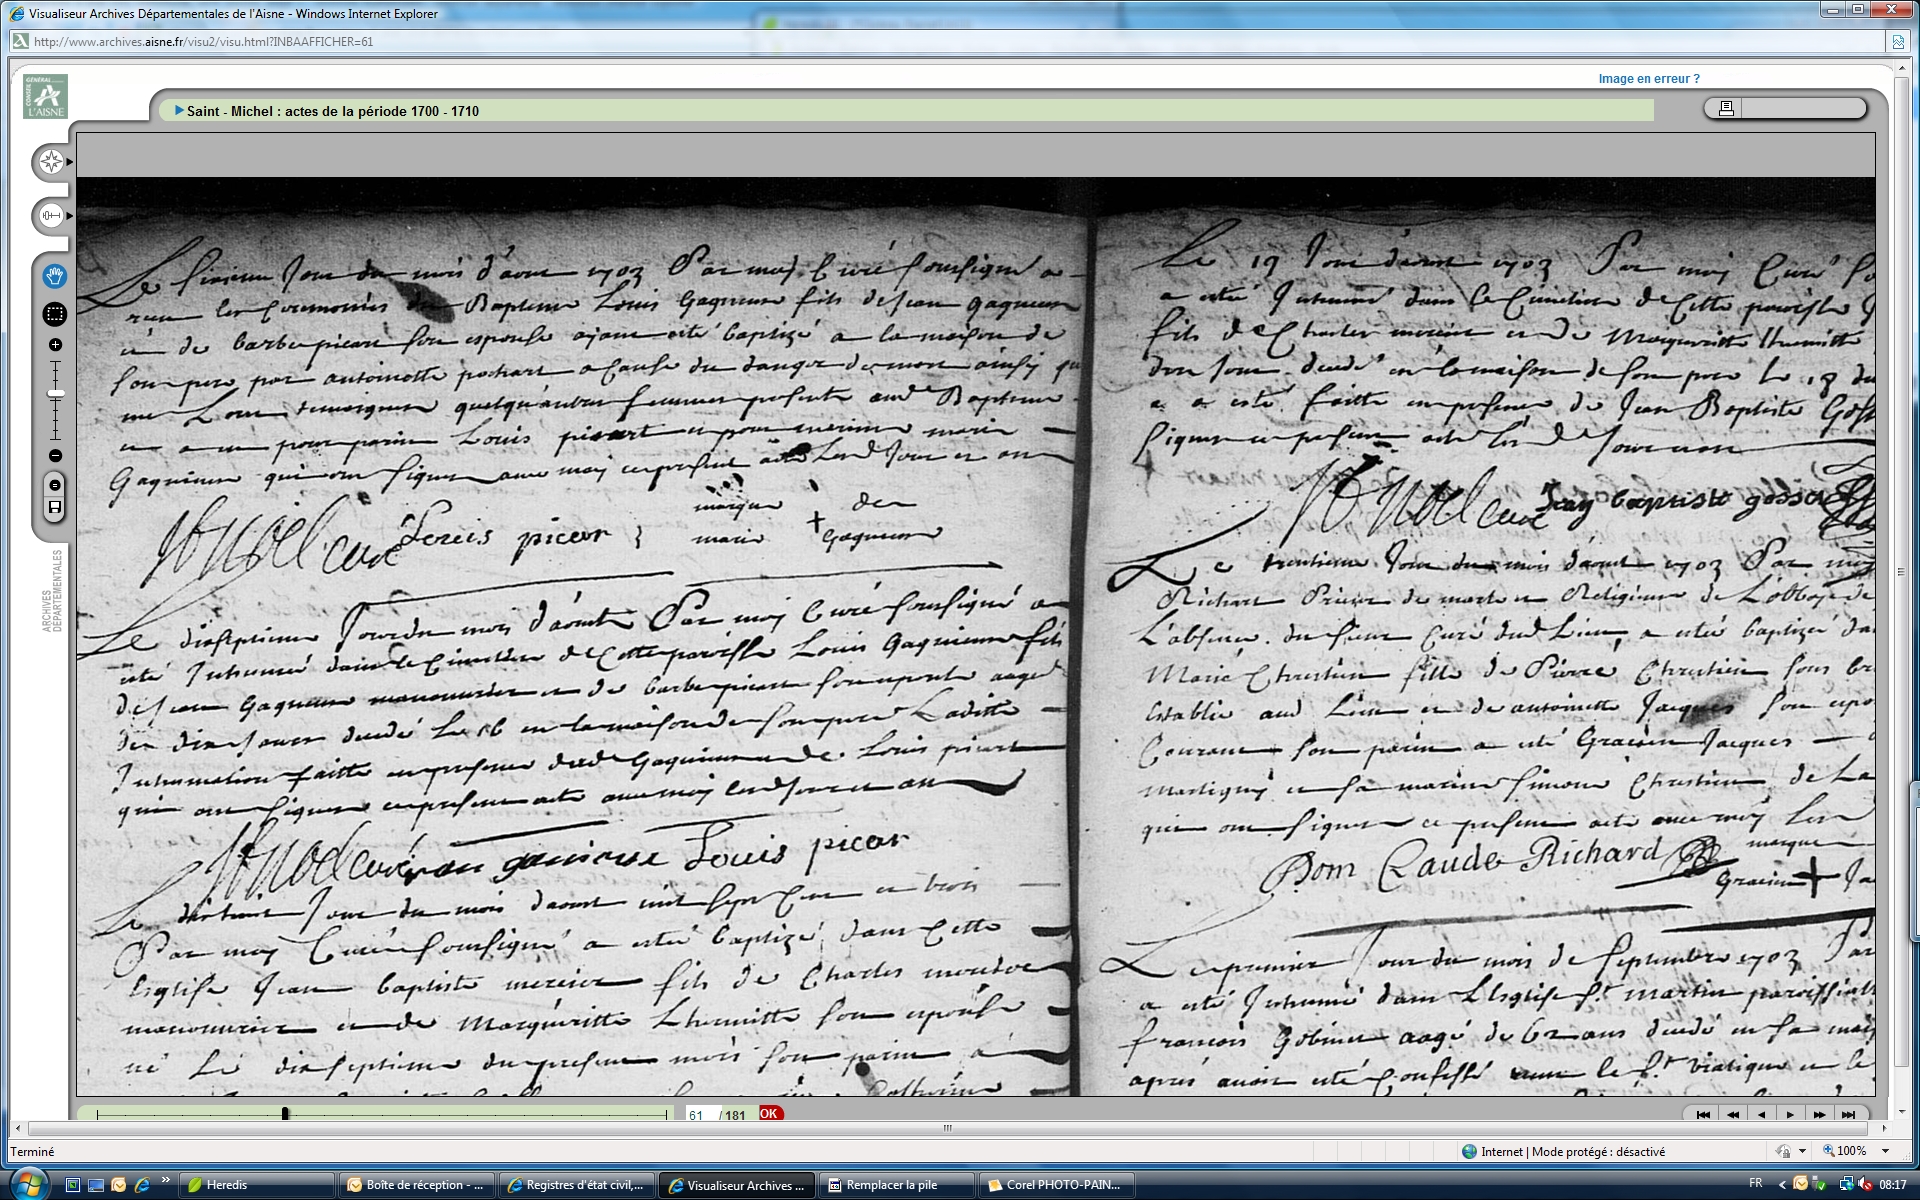 Visualiseur Archives Départementales de l'Aisne - Windows Internet Explorer
http://www.archives.aisne.fr/visu2/visu.html?INBAAFFICHER=61
Image en erreur ?
CONSEIL GÉNÉRAL
L'AISNE
Saint - Michel : actes de la période 1700 - 1710
ARCHIVES
DÉPARTEMENTALES
Le Jour du mois d'aout 1703 Par moy Curé soussigné a
receu les Ceremonies du Baptesme Louis Gaqueuse fils de Jean Gaqueuse
et de barbe picart son espouse ayant esté baptizé a la maison de
son pere par antoinette pochart a Cause du danger de mort ainsy qu
me L'ont temoigner quelqu'autres femmes presente aud. Baptesme
et a eu pour parin Louis picart et pour mareine marie
qui ont signer avec moy ce present acte Les d. Jour et an
Noel curé Louis picar marque + de
marie
Le disseptieme Jour du mois d'aoust Par moy Curé soussigné a
esté Inhumé dans le Cimetiere de Cette paroisse Louis fils
de Jean manouvrier et de barbe picart son epouse aagé
de dix Jours decedé Le 16 en la maison de son pere Laditte
Inhumation faitte en presence dud. et de Louis picart
qui ont signer ce present acte avec moy les d. Jour et an
Noel curé Louis picar
Le dixhuit Jour du mois d'aoust mil sept Cent et trois
Par moy Curé soussigné a esté baptizé dans Cette
Esglise Jean baptiste mercier fils de Charles mercier
manouvrier et de Margueritte Lhermitte son epouse
né Le disseptieme du present mois son parin a
Catherine
Le 19 Jour d'aout 1703 Par moy Curé so
a esté Inhumé dans le Cimetiere de Cette paroisse J
fils de Charles mercier et de Margueritte Lhermitte
d'un Jour decedé en la maison de son pere Le 18 du
a esté faitte en presence de Jean Baptiste Goss
signer ce present acte les d. Jour et an
Noel curé Jean baptiste gosse
Le trentieme Jour du mois d'aoust 1703 Par moy
Richart Prieur de et Religieux de L'abbaye de
L'absence du sieur Curé dud. Lieu, a esté baptizé da
Marie Chrestien fille de Pierre Chrestien
establie aud. Lieu et de antoinette Jacques son epou
Courant son parin a esté Gracien Jacques
Martigny et sa marine Simone Chrestien de La
qui ont signer ce present acte avec moy Les
Dom Claude Richard marque
Gracien + Ja
Le premier Jour du mois de Septembre 1703 Par
a esté Inhumé dans L'Esglise St. Martin paroissiale
françois Gobinet aagé de 62 ans decedé en sa mais
apres avoir esté Confessé receu le St. viatique et le
61 / 181 OK
Terminé
Internet | Mode protégé : désactivé
100%
Heredis
Boîte de réception - ...
Registres d'état civil,...
Visualiseur Archives ...
Remplacer la pile
Corel PHOTO-PAIN...
FR
08:17